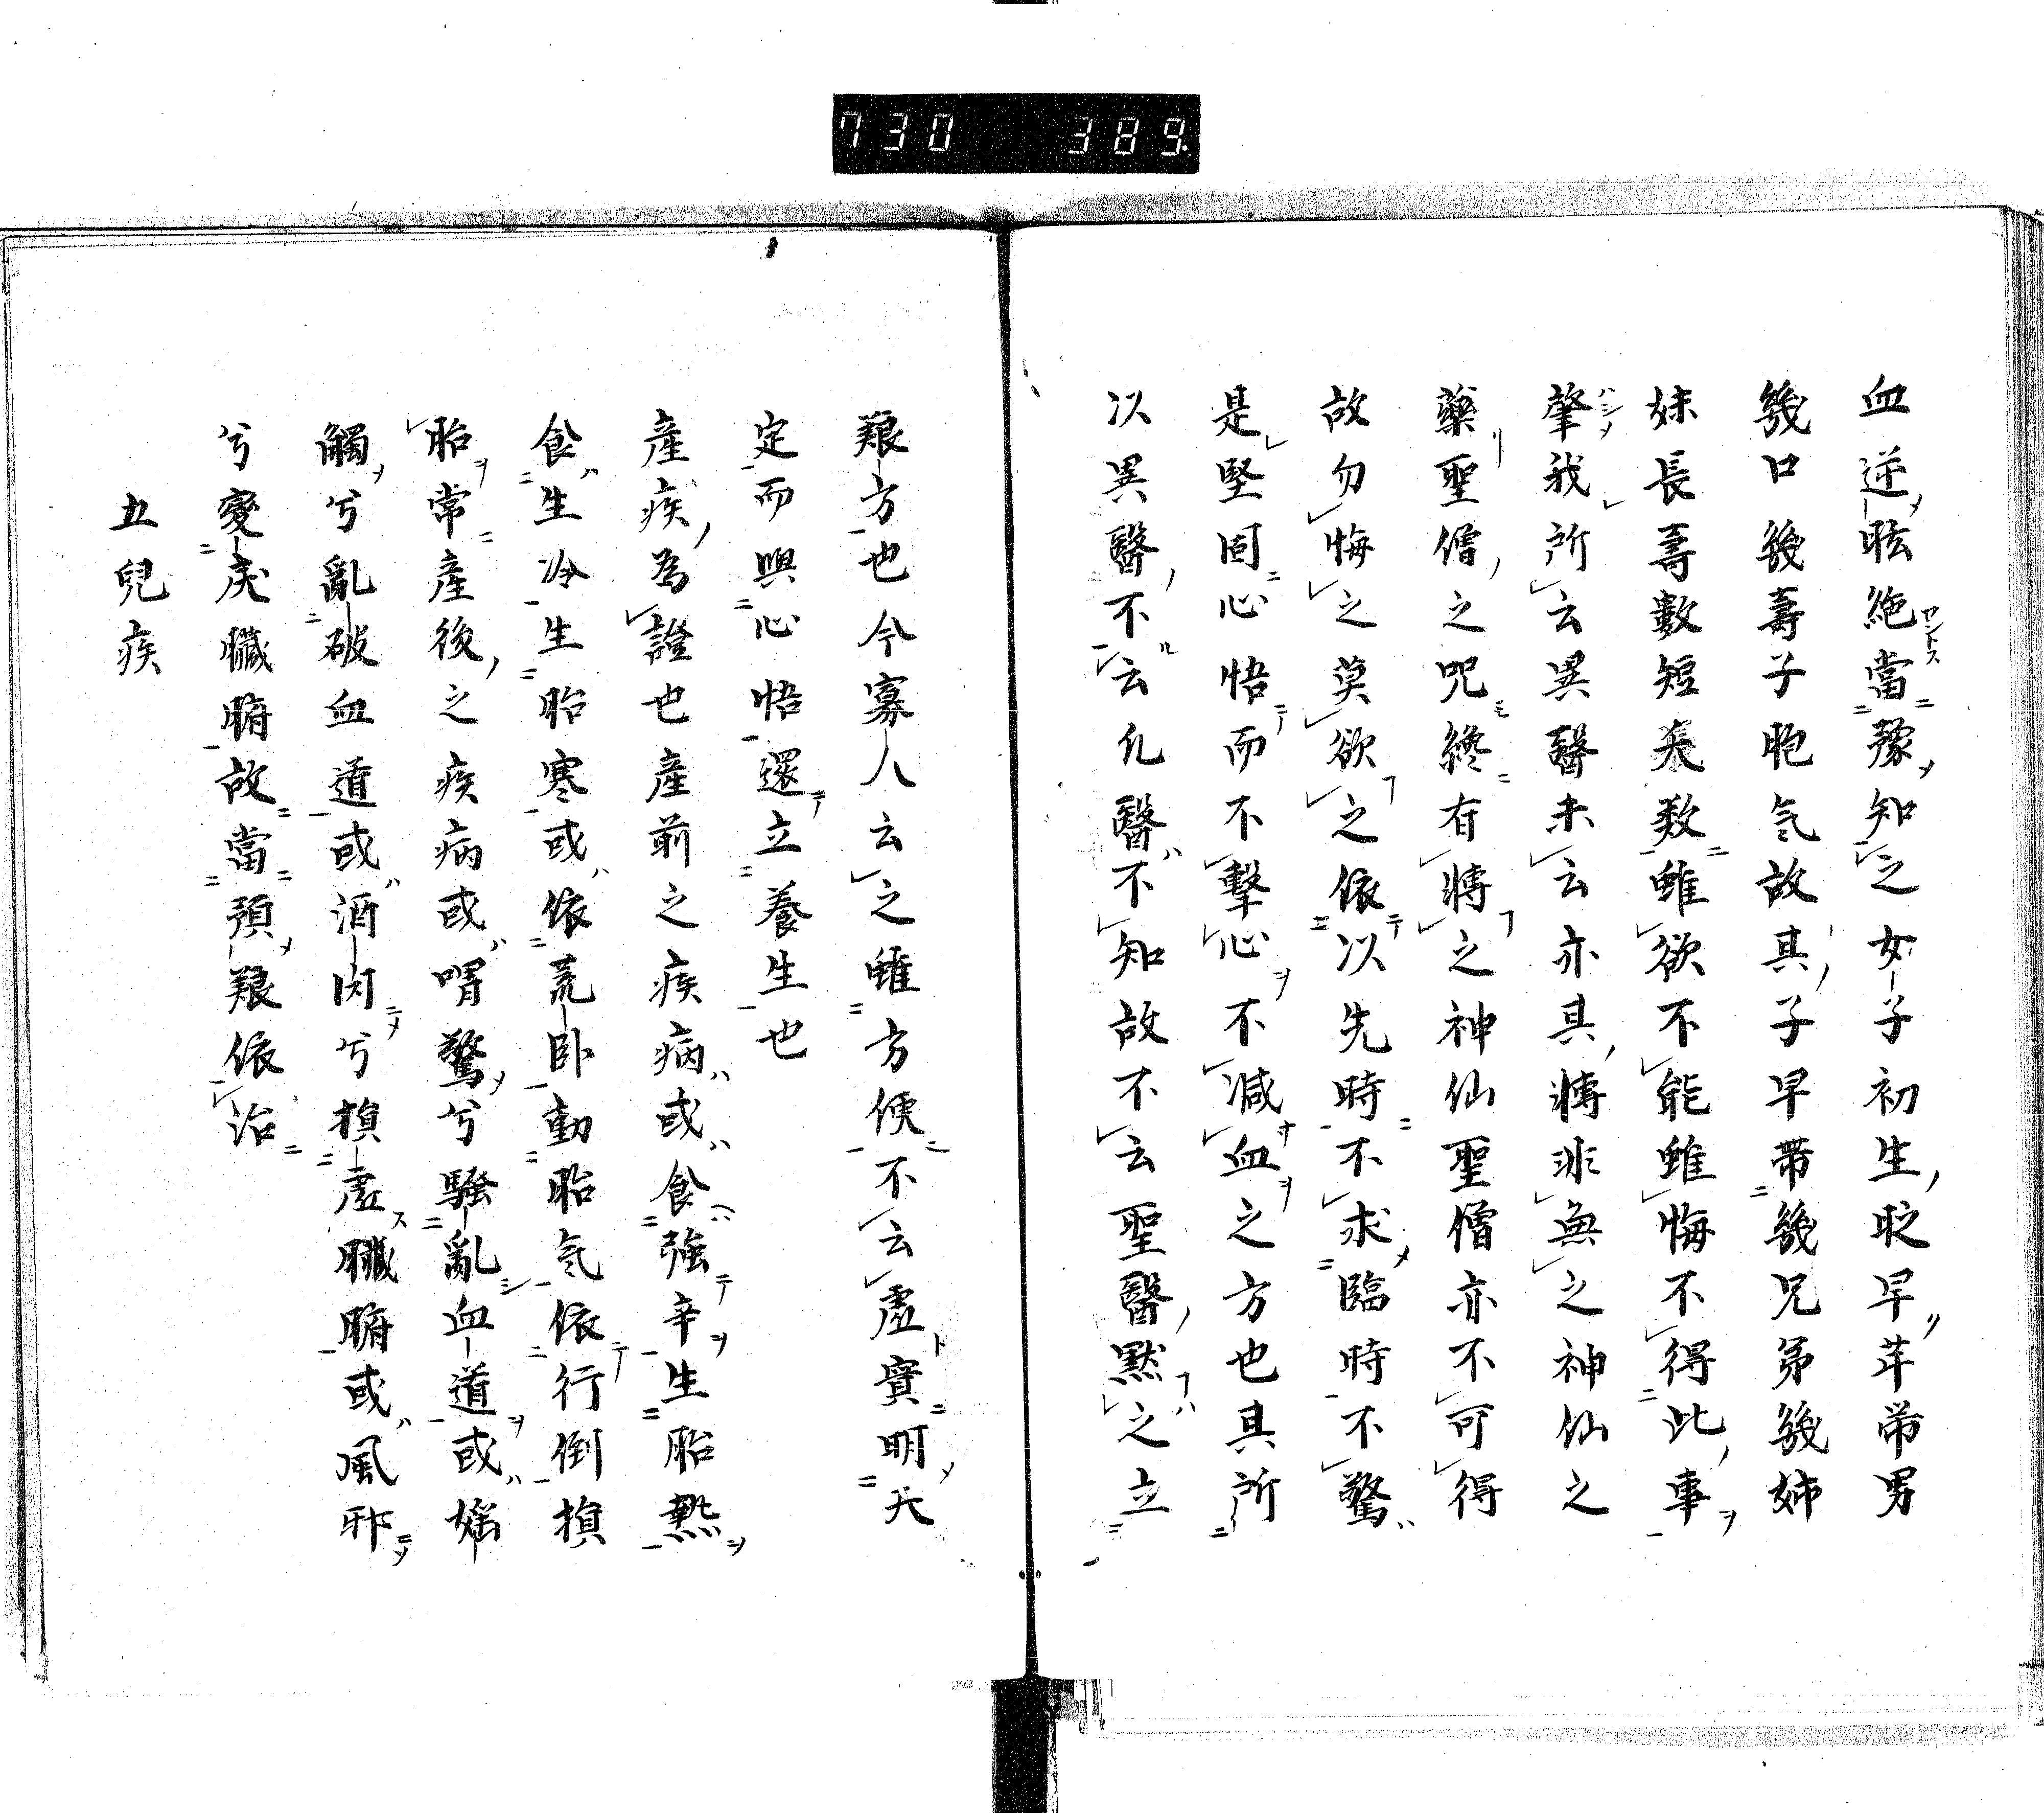 730 389
血逆眩絶當豫知之女子初生眨早芽帶男
幾口幾壽子胞气故其子早帶幾兄弟幾姉
妹長壽數短夭数雖欲不能雖悔不得此事
肇我所云異醫未云亦其慱非無之神仙之
藥聖僧之呪終有慱之神仙聖僧亦不可得
故勿悔之莫欲之依以先時不求臨時不驚
是堅固心悟而不擊心不減血之方也其所
以異醫不云凢醫不知故不云聖醫黙之立
艱方也今寡人云之雖方便不云虚實明天
定而與心悟還立養生也
產疾為證也產前之疾病或食強辛生胎熱
食生冷生胎寒或依荒臥動胎气依行倒損
胎常產後之疾病或喟驚兮騒亂血道或婬
觸兮亂破血道或酒肉兮損虚臓腑或風邪
兮変戾臓腑故當預艱依治
五兒疾